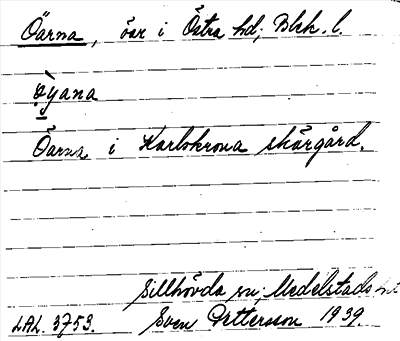 Öarna, öar i Östra hd; Blek. l.
òyana
Öarna i Karlskrona skärgård.
Sillhövda sn; Medelstads hd
LAL. 3753. Sven Pettersson 1939.